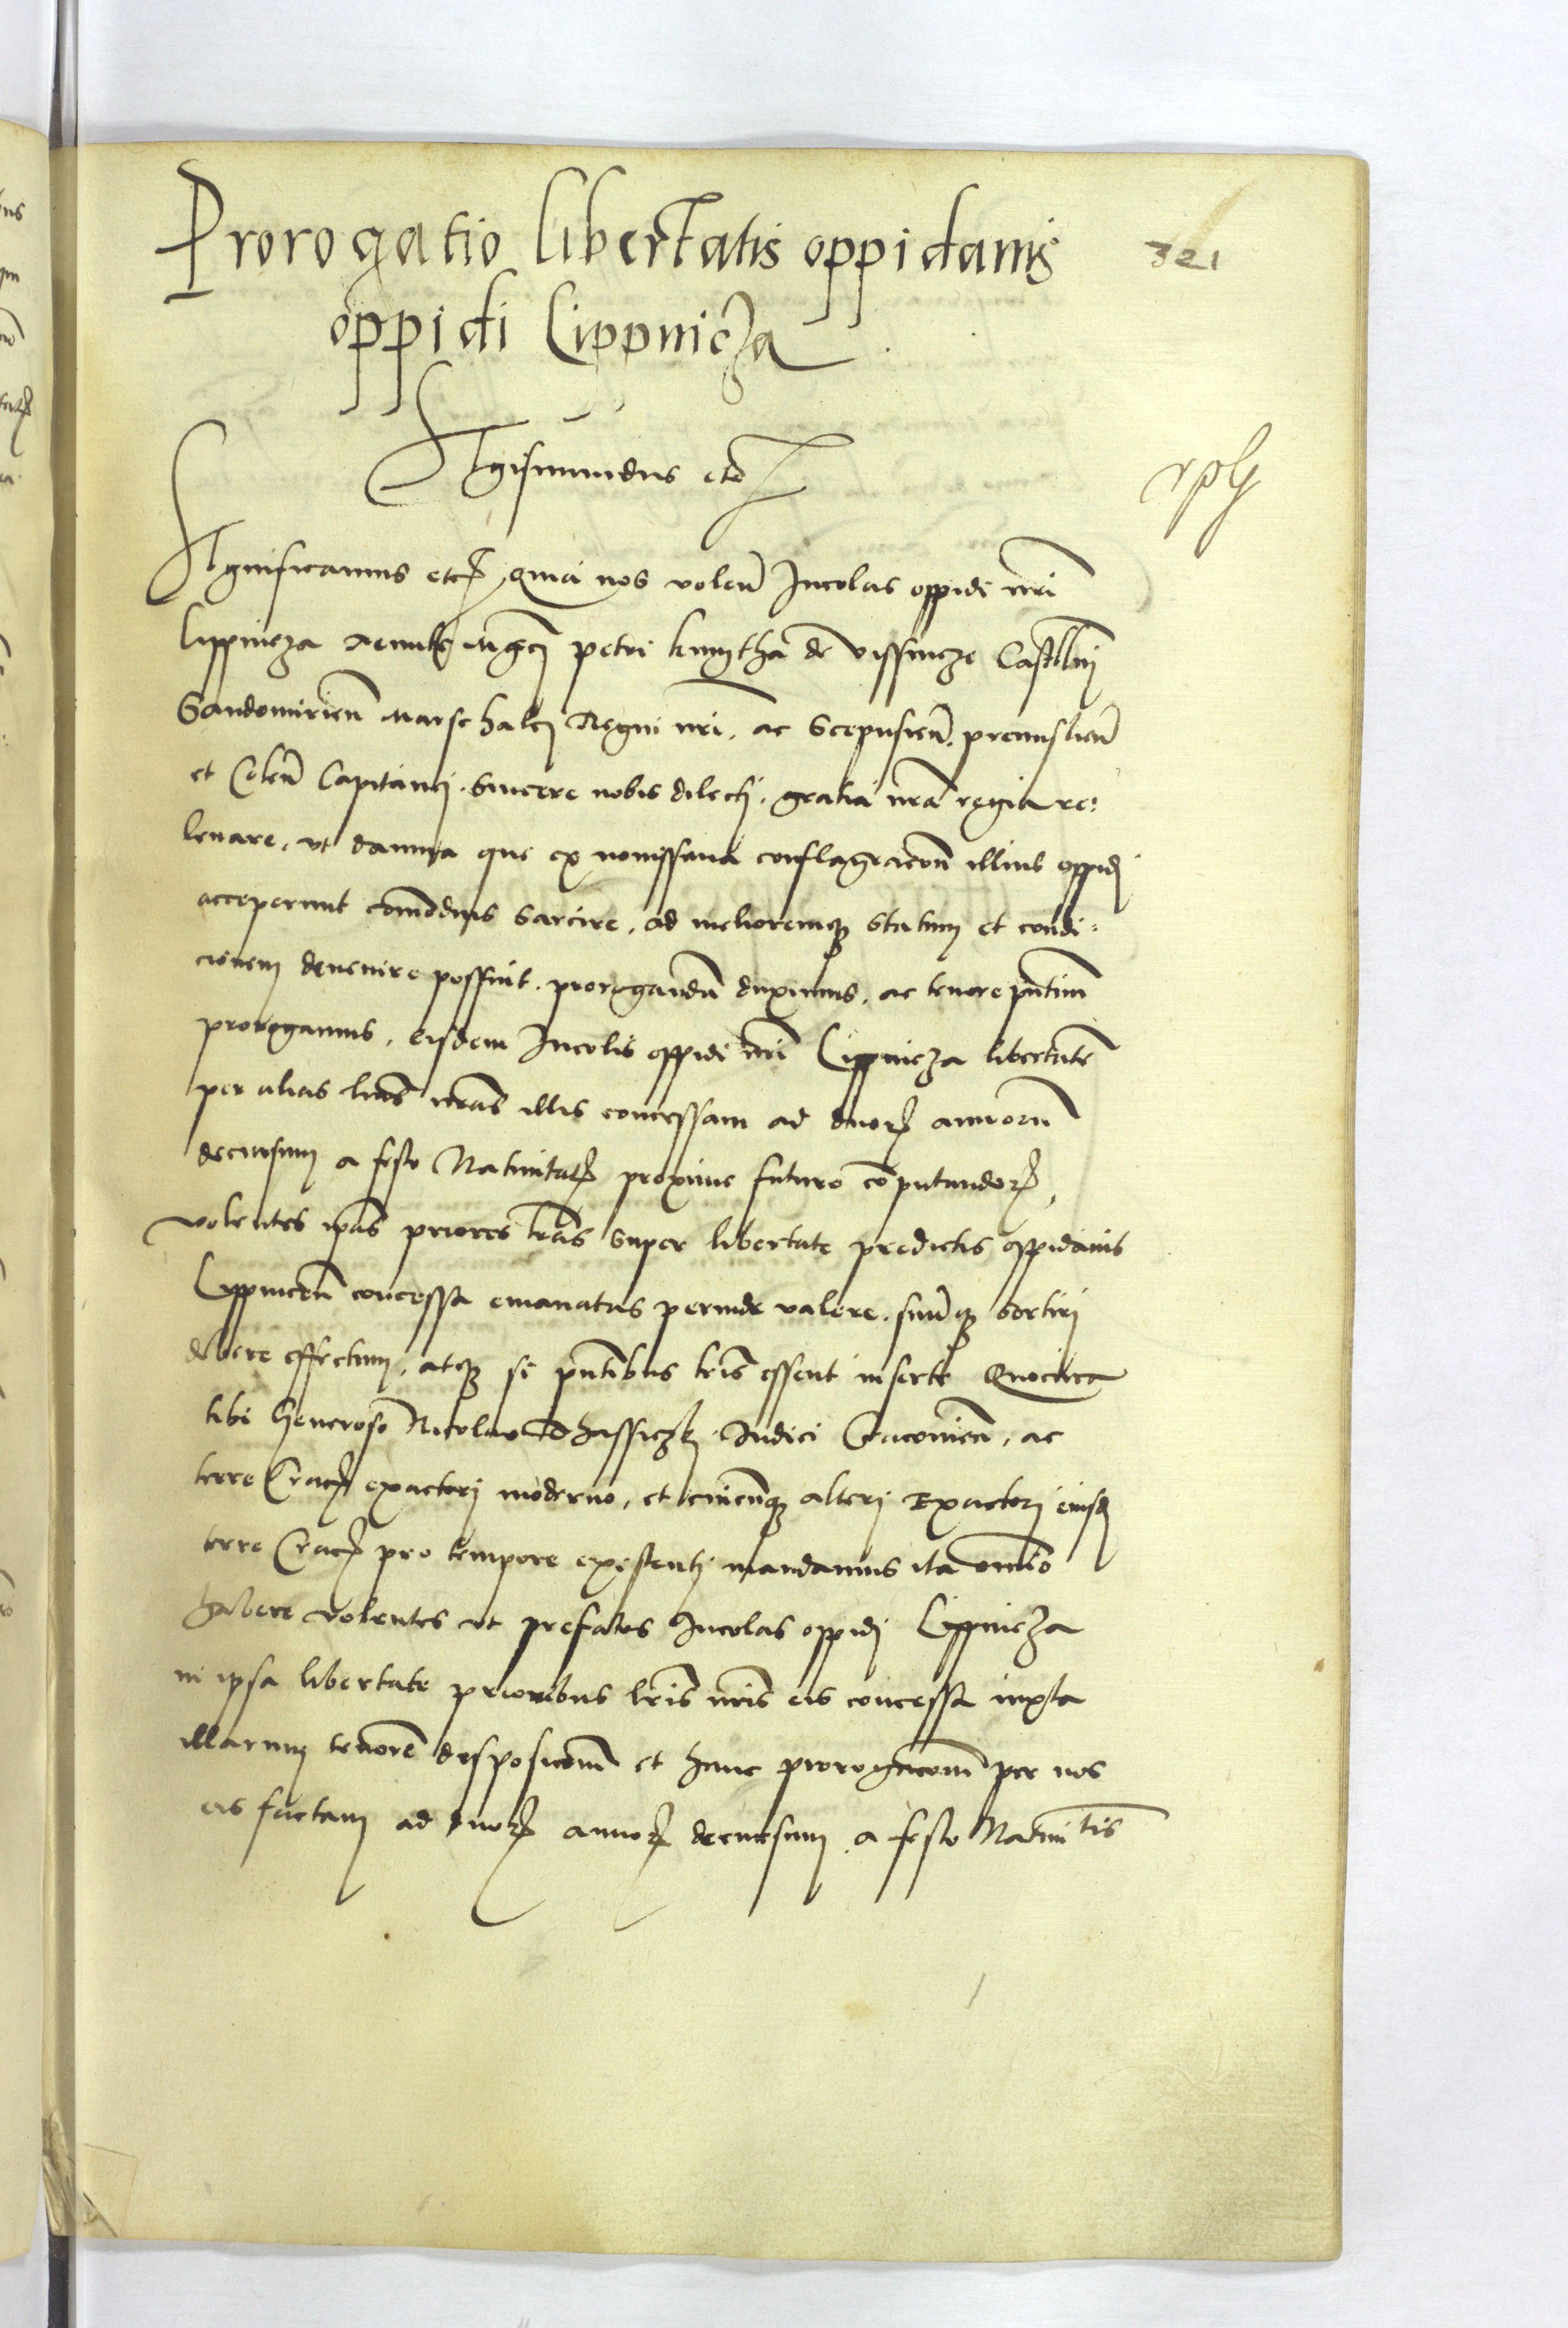 Prorogatio libertatis oppidanis
321
oppidi Lippnicza
Sigismundus etc
Significamus etc quia nos volen Incolas oppidi nri
Lippnicza petri kmytha de vissnicze Castllnj
Sandomirien Marschalcj Regni nri, ac Scepusien, premislien
et Colen Capitanej. Sincere nobis dilectj, gratia nra regia re:
levare, ut damna que ex novissima conflagracion illius oppidj
acceperunt comodius sarcire, ad melioremq statum et condi:
cionem devenire possint. prorogandu duximus, ac tenore pntium
prorogamus, eisdem Incolis oppidi nri Lippnicza libertate
per alias lras nras illis concessam ad duor annoru
decursum a festo Nativitat proxime futuro computandor,
volentes ipas priores lras super libertate predictis oppidanis
Lippnicen concessa emanatas perinde valere, suumq sortirj
debere effectum, atq si pntibus lris essent inserte Quocirca
tibi Generoso Nicolao Judici Cracovien, ac
terre Crac exactorj moderno, et cuicunq alterj Exactorj eiusd
terre Crac pro tempore existentj mandamus ita omnio
habere volentes ut prefatos Incolas oppidj Lippnicza
in ipsa libertate prioribus lris nris eis concessa iuxta
illarum tenore disposicionem et hanc prorogacom per nos
eis factam ad duor annor decursum a festo Nativitis